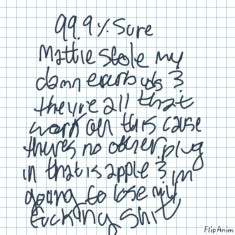 99.9% Sure
Mattie stole my
damn earbuds &
they're all that
work on this cause
theres no other plug
in that is apple & im
going to lose my
fucking shit
FlipAnim